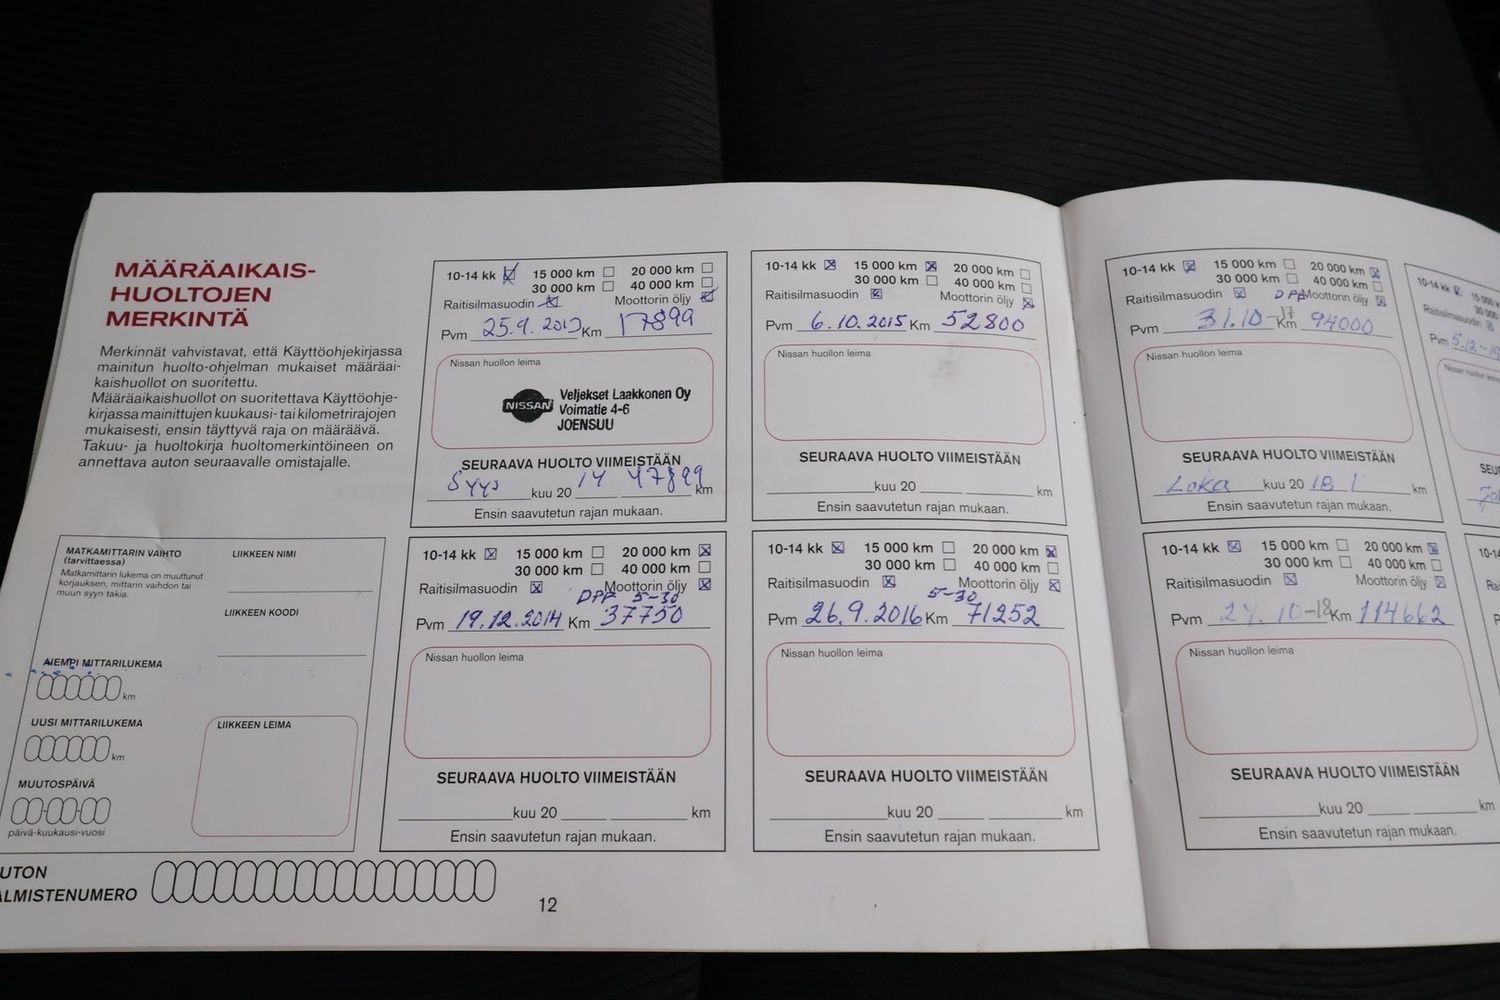 MÄÄRÄAIKAIS-
HUOLTOJEN
MERKINTÄ
Merkinnät vahvistavat, että Käyttöohjekirjassa
mainitun huolto-ohjelman mukaiset määräai-
kaishuollot on suoritettu.
Määräaikaishuollot on suoritettava Käyttöohje-
kirjassa mainittujen kuukausi- tai kilometrirajojen
mukaisesti, ensin täyttyvä raja on määräävä.
Takuu- ja huoltokirja huoltomerkintöineen on
annettava auton seuraavalle omistajalle.
MATKAMITTARIN VAIHTO
(tarvittaessa)
Matkamittarin lukema on muuttunut
korjauksen, mittarin vaihdon tai
muun syyn takia.
AIEMPI MITTARILUKEMA
km
UUSI MITTARILUKEMA
km
MUUTOSPÄIVÄ
päivä-kuukausi-vuosi
LIIKKEEN NIMI
LIIKKEEN KOODI
LIIKKEEN LEIMA
UTON
ALMISTENUMERO
10-14 kk 15 000 km 20 000 km
30 000 km 40 000 km
Raitisilmasuodin Moottorin öljy
Pvm 25.9. Km 17899
Nissan huollon leima
NISSAN
Veljekset Laakkonen Oy
Voimatie 4-6
JOENSUU
SEURAAVA HUOLTO VIIMEISTÄÄN
Syys kuu 20 14 47899 km
Ensin saavutetun rajan mukaan.
10-14 kk 15 000 km 20 000 km
30 000 km 40 000 km
Raitisilmasuodin Moottorin öljy
DPF 5-30
Pvm 19.12.2014 Km 37750
Nissan huollon leima
SEURAAVA HUOLTO VIIMEISTÄÄN
kuu 20 km
Ensin saavutetun rajan mukaan.
12
10-14 kk 15 000 km 20 000 km
30 000 km 40 000 km
Raitisilmasuodin Moottorin öljy
Pvm 6.10.2015 Km 52800
Nissan huollon leima
SEURAAVA HUOLTO VIIMEISTÄÄN
kuu 20 km
Ensin saavutetun rajan mukaan.
10-14 kk 15 000 km 20 000 km
30 000 km 40 000 km
Raitisilmasuodin Moottorin öljy
5-30
Pvm 26.9.2016 Km 71252
Nissan huollon leima
SEURAAVA HUOLTO VIIMEISTÄÄN
kuu 20 km
Ensin saavutetun rajan mukaan.
10-14 kk 15 000 km 20 000 km
30 000 km 40 000 km
Raitisilmasuodin DPF Moottorin öljy
Pvm 31.10-17 Km 94000
Nissan huollon leima
SEURAAVA HUOLTO VIIMEISTÄÄN
Loka kuu 20 18 km
Ensin saavutetun rajan mukaan.
10-14 kk 15 000 km 20 000 km
30 000 km 40 000 km
Raitisilmasuodin Moottorin öljy
Pvm 24.10-18 Km 114662
Nissan huollon leima
SEURAAVA HUOLTO VIIMEISTÄÄN
kuu 20 km
Ensin saavutetun rajan mukaan.
10-14 kk
Raitisilmasuodin
Pvm 5.12-
Nissan huollon leima